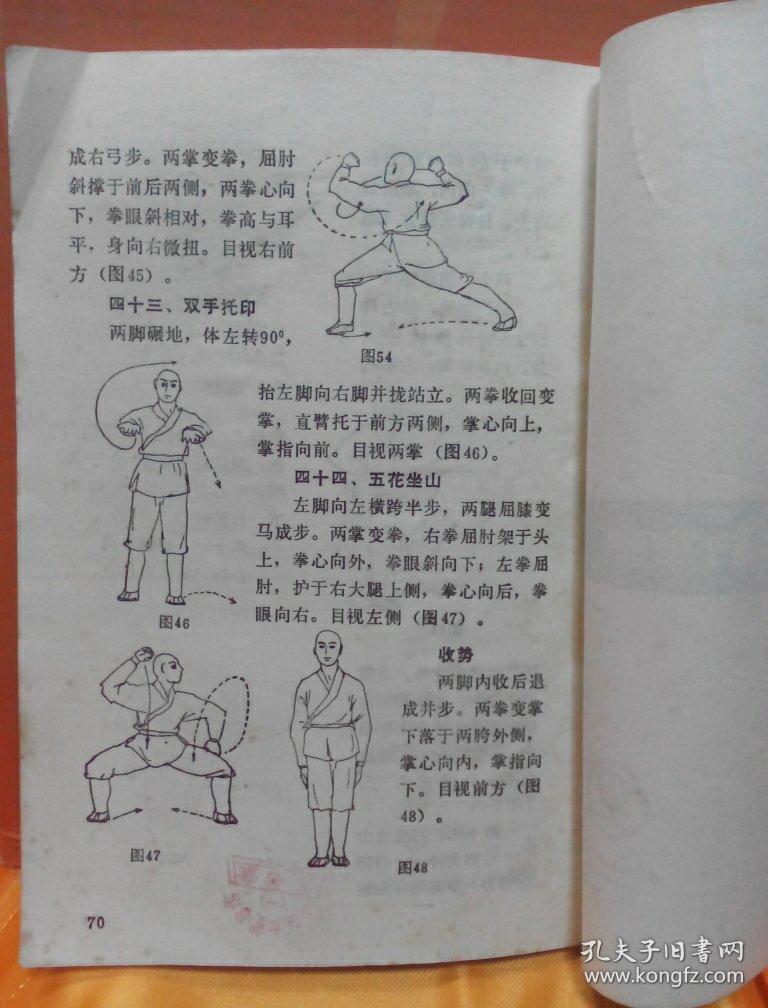 成右弓步。两掌变拳，屈肘
斜撑于前后两侧，两拳心向
下，拳眼斜相对，拳高与耳
平，身向右微扭。目视右前
方（图45）。
四十三、双手托印
两脚碾地，体左转90°，
图54
抬左脚向右脚并拢站立。两拳收回变
掌，直臂托于前方两侧，掌心向上，
掌指向前。目视两掌（图46）。
四十四、五花坐山
左脚向左横跨半步，两腿屈膝变
马成步。两掌变拳，右拳屈肘架于头
上，拳心向外，拳眼斜向下；左拳屈
肘，护于右大腿上侧，拳心向后，拳
眼向右。目视左侧（图47）。
图46
收势
两脚内收后退
成并步。两拳变掌
下落于两胯外侧，
掌心向内，掌指向
下。目视前方（图
48）。
图47
图48
70
孔夫子旧书网
www.kongfz.com